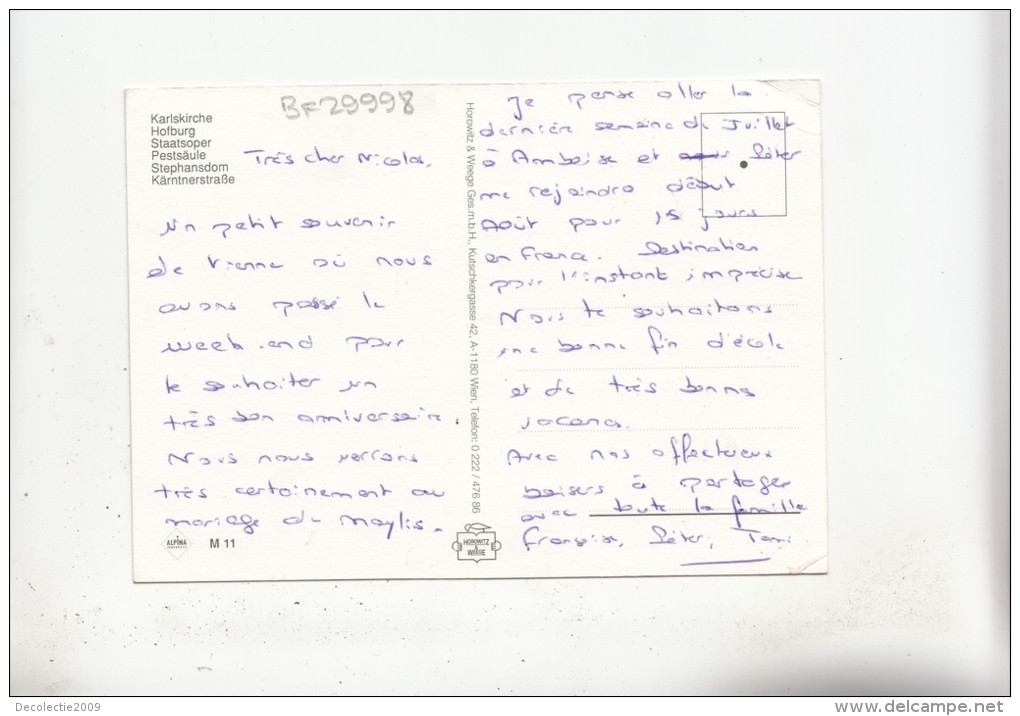 Karlskirche
Hofburg
Staatsoper
Pestsäule
Stephansdom
Kärntnerstraße
BF29998
Très cher Nicolas,
Un petit souvenir
de Vienne où nous
avons passé le
week-end pour
te souhaiter un
très bon anniversaire.
Nous nous verrons
très certainement au
mariage de Maylis.
ALPINA
M 11
Horowitz & Weege Ges.m.b.H., Kutschkergasse 42, A-1180 Wien, Telefon: 0 222 / 476 86
HOROWITZ
WEEGE
Je pense aller la
dernière semaine de Juillet
à Amboise et Péter
me rejoindra début
Août pour 15 jours
en France. Destination
pour l'instant imprécise
Nous te souhaitons
une bonne fin d'école
et de très bonnes
vacances.
Avec nos affectueux
baisers à partager
avec toute la famille
Françoise, Péter,
Decolectie2009
www.delcampe.net